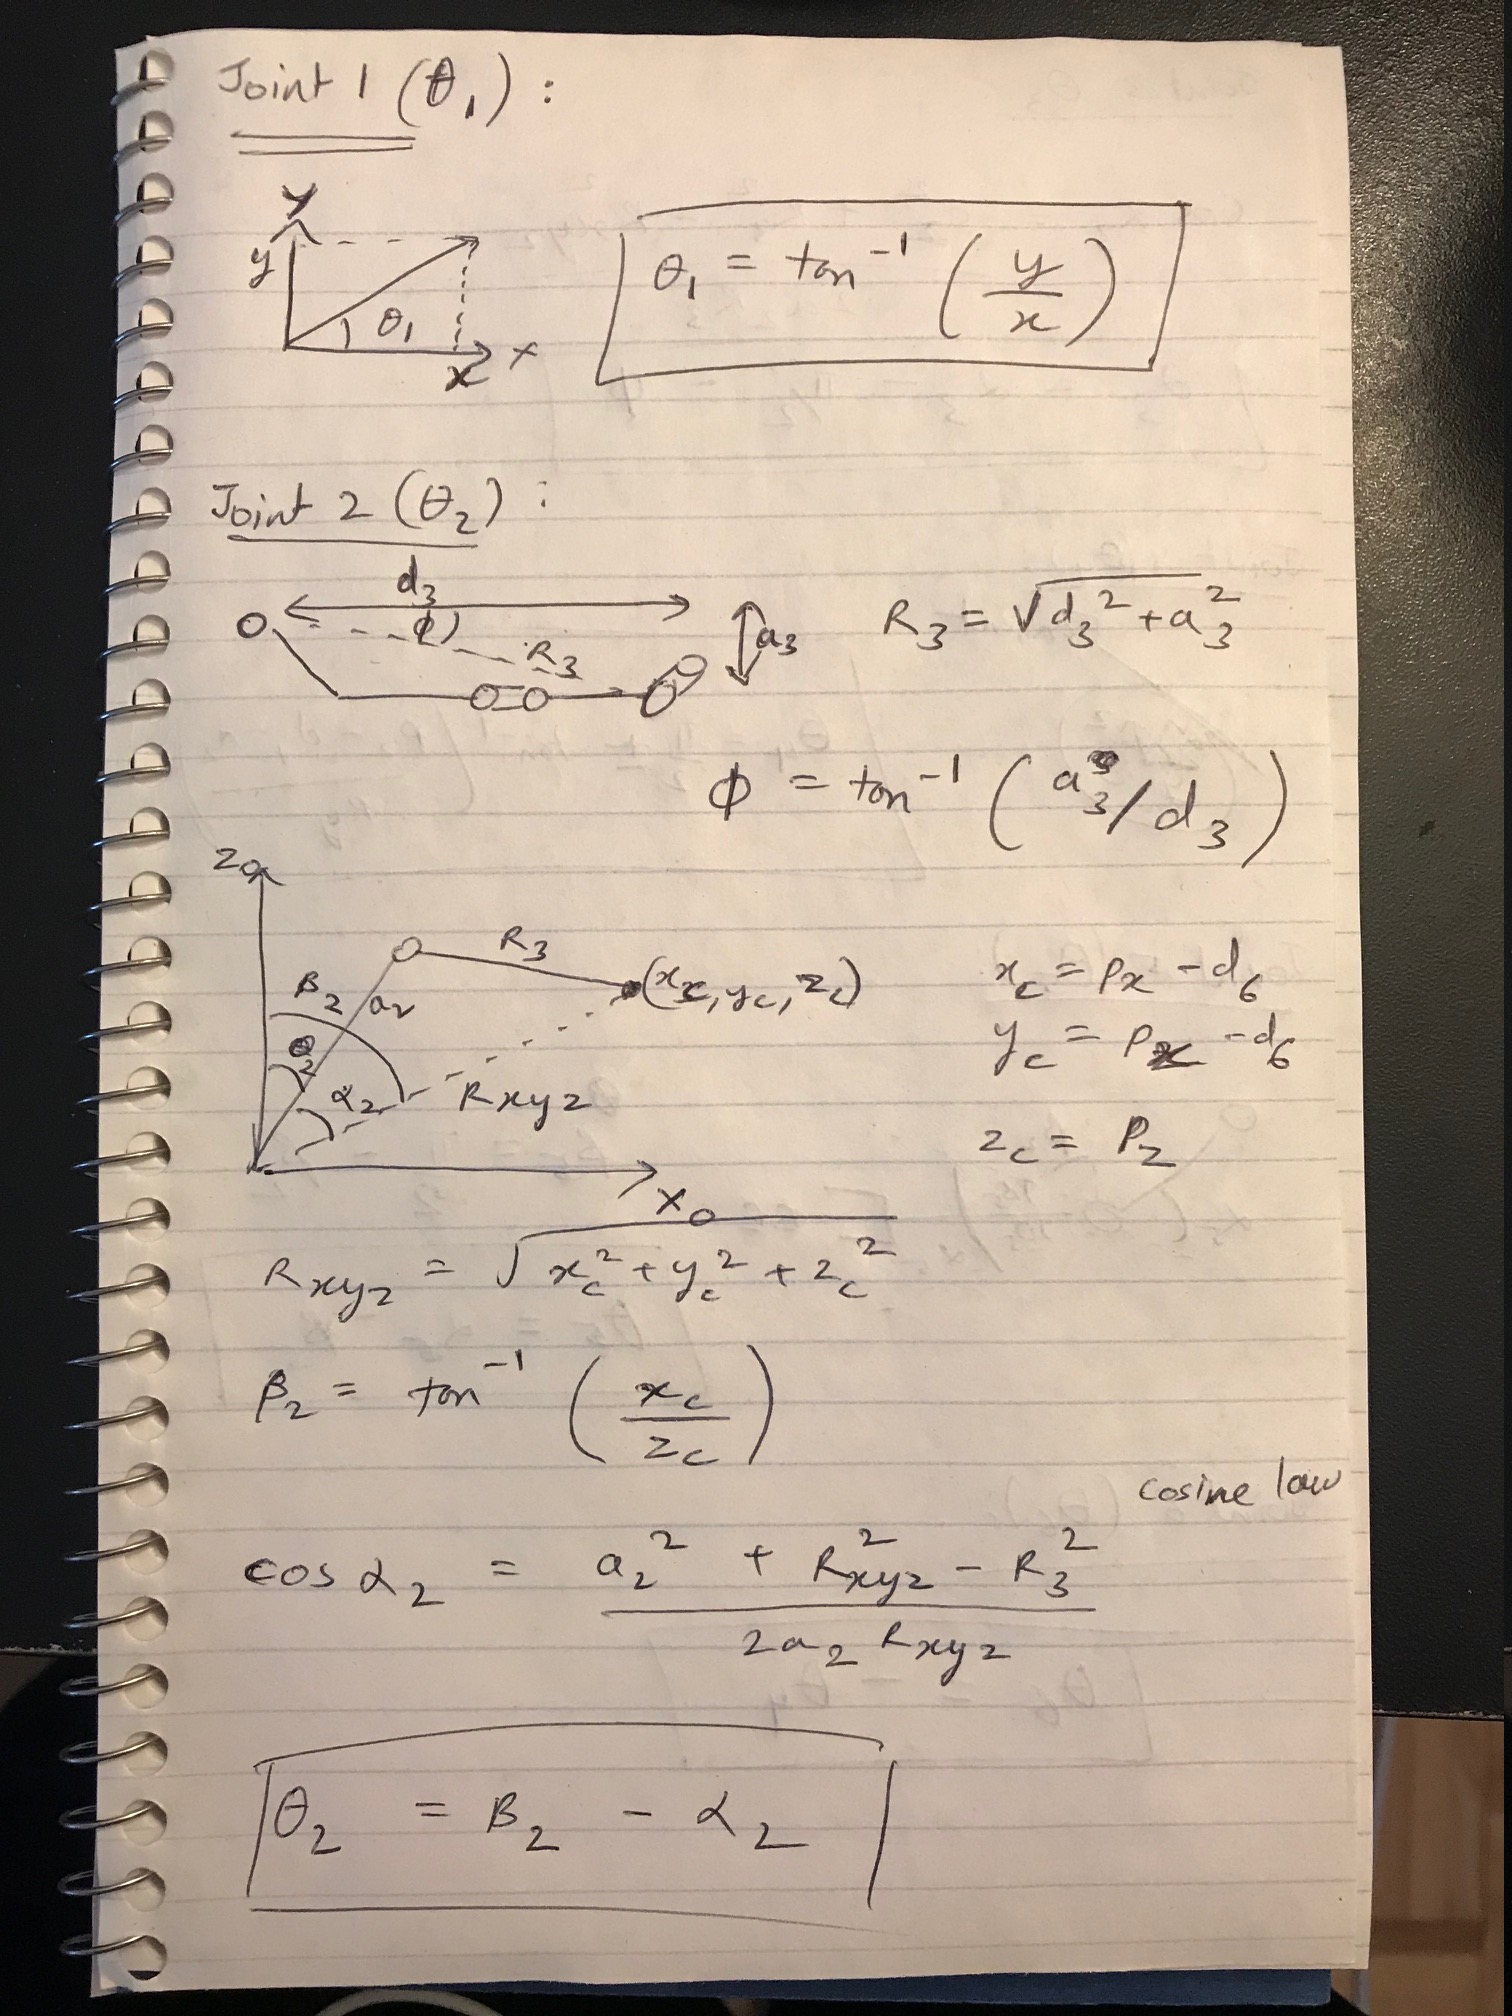 Joint 1 (θ₁) :
Y
y
θ₁
x
X
θ₁ = tan⁻¹ (y/x)
Joint 2 (θ₂) :
d₃
ϕ
R₃
a₃
R₃ = √(d₃² + a₃²)
ϕ = tan⁻¹ (a₃/d₃)
Z₀
R₃
β₂
a₂
(x_c, y_c, z_c)
θ₂
α₂
Rxyz
X₀
x_c = Px - d₆
y_c = Px - d₆
z_c = Pz
Rxyz = √(x_c² + y_c² + z_c²)
β₂ = tan⁻¹ (x_c/z_c)
cosine law
cos α₂ = (a₂² + Rxyz² - R₃²) / (2a₂ Rxyz)
θ₂ = β₂ - α₂